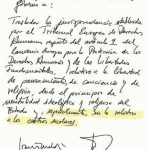 Trasladar la jurisprudencia establecida
por el Tribunal Europeo de Derechos
Humanos respecto del artículo 9 del
Convenio Europeo para la Protección de los
Derechos Humanos y de las Libertades
Fundamentales, relativo a la libertad
de pensamiento, de conciencia y de
religión, desde el principio de
neutralidad ideológica y religiosa del
Estado y, especialmente, en lo relativo
a los centros escolares.